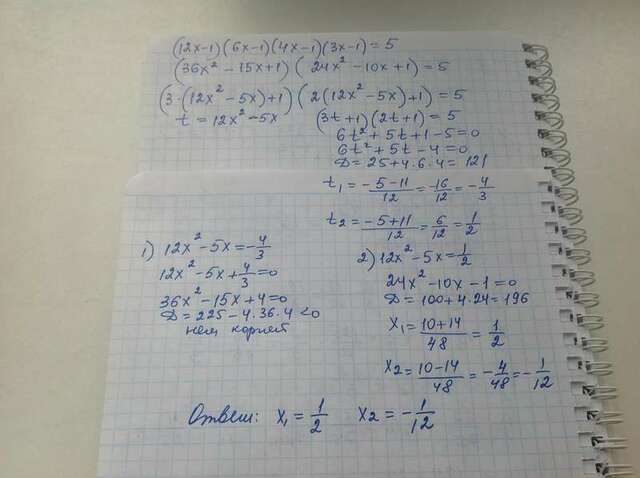 (12x-1)(6x-1)(4x-1)(3x-1)=5
(36x²-15x+1)(24x²-10x+1)=5
(3·(12x²-5x)+1)(2(12x²-5x)+1)=5
t=12x²-5x (3t+1)(2t+1)=5
6t²+5t+1-5=0
6t²+5t-4=0
D=25+4·6·4=121
t₁=-5-11/12=-16/12=-4/3
t₂=-5+11/12=6/12=1/2
1) 12x²-5x=-4/3
12x²-5x+4/3=0
36x²-15x+4=0
D=225-4·36·4<0
нет корней
2) 12x²-5x=1/2
24x²-10x-1=0
D=100+4·24=196
x₁=10+14/48=1/2
x₂=10-14/48=-4/48=-1/12
Ответ: x₁=1/2 x₂=-1/12